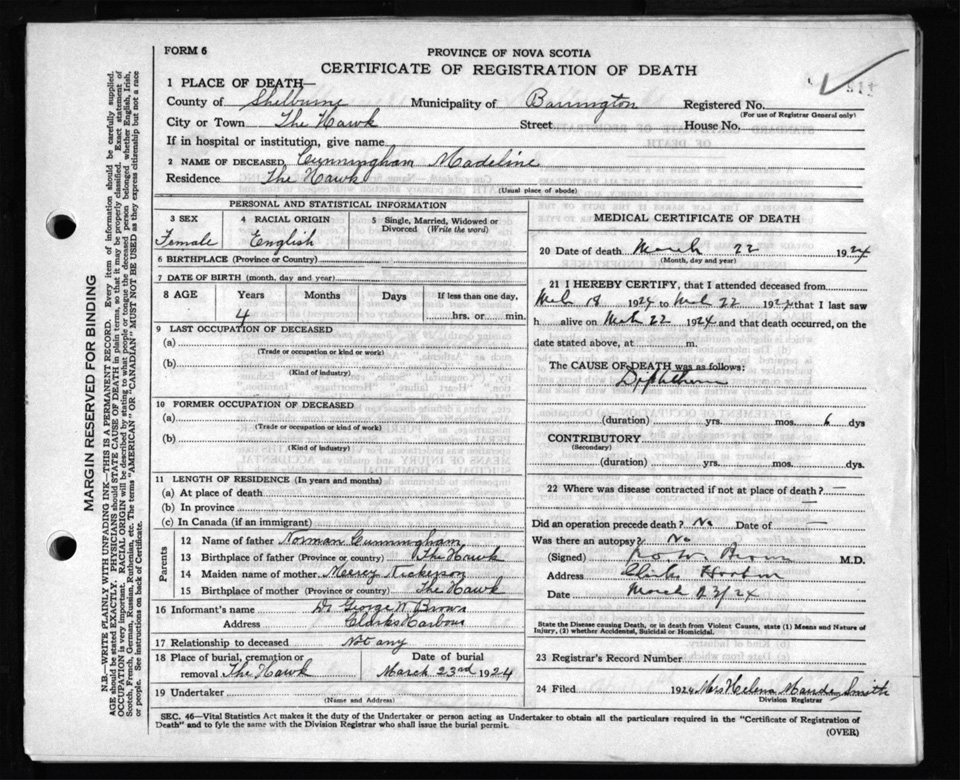 FORM 6
PROVINCE OF NOVA SCOTIA
CERTIFICATE OF REGISTRATION OF DEATH
1 PLACE OF DEATH—
County of Shelburne Municipality of Barrington Registered No.
(For use of Registrar General only)
City or Town The Hawk Street House No.
If in hospital or institution, give name
2 NAME OF DECEASED, Cunningham Madeline
Residence The Hawk
(Usual place of abode)
PERSONAL AND STATISTICAL INFORMATION
3 SEX 4 RACIAL ORIGIN 5 Single, Married, Widowed or Divorced (Write the word)
Female English
6 BIRTHPLACE (Province or Country)
7 DATE OF BIRTH (month, day and year)
8 AGE Years Months Days If less than one day,
4 hrs. or min.
9 LAST OCCUPATION OF DECEASED
(a)
(Trade or occupation or kind or work)
(b)
(Kind of industry)
10 FORMER OCCUPATION OF DECEASED
(a)
(Trade or occupation or kind of work)
(b)
(Kind of industry)
11 LENGTH OF RESIDENCE (In years and months)
(a) At place of death
(b) In province
(c) In Canada (if an immigrant)
Parents
12 Name of father Norman Cunningham
13 Birthplace of father (Province or country) The Hawk
14 Maiden name of mother Mercy Nickerson
15 Birthplace of mother (Province or country) The Hawk
16 Informant's name Dr George W. Brown
Address Clarks Harbour
17 Relationship to deceased Not any
18 Place of burial, cremation or removal The Hawk Date of burial March 23rd 1924
19 Undertaker
(Name and Address)
MEDICAL CERTIFICATE OF DEATH
20 Date of death March 22 1924
(Month, day and year)
21 I HEREBY CERTIFY, that I attended deceased from
Mch 18 1924 to Mch 22 1924 that I last saw
h alive on Mch 22 1924 and that death occurred, on the
date stated above, at m.
The CAUSE OF DEATH was as follows:
Diphtheria
(duration) yrs. mos. 6 dys
CONTRIBUTORY
(Secondary)
(duration) yrs. mos. dys.
22 Where was disease contracted if not at place of death? —
Did an operation precede death? No Date of —
Was there an autopsy? No
(Signed) Brown M.D.
Address Clarks Harbour
Date March 23/24
State the Disease causing Death, or in death from Violent Causes, state (1) Means and Nature of
Injury, (2) whether Accidental, Suicidal or Homicidal.
23 Registrar's Record Number
24 Filed 1924 Mrs Helena Maude Smith
Division Registrar
SEC. 46—Vital Statistics Act makes it the duty of the Undertaker or person acting as Undertaker to obtain all the particulars required in the "Certificate of Registration of
Death" and to fyle the same with the Division Registrar who shall issue the burial permit.
(OVER)
MARGIN RESERVED FOR BINDING
N.B.—WRITE PLAINLY WITH UNFADING INK—THIS IS A PERMANENT RECORD. Every item of information should be carefully supplied.
AGE should be stated EXACTLY. PHYSICIANS should STATE CAUSE OF DEATH in plain terms, so that it may be properly classified. Exact statement of
OCCUPATION is very important. RACIAL ORIGIN will be described by stating to what people or tongue the deceased person belonged whether English, Irish,
Scotch, French, German, Russian, Ruthenian, etc. The terms "AMERICAN" OR "CANADIAN" MUST NOT BE USED as they express citizenship but not a race
or people. See instructions on back of Certificate.